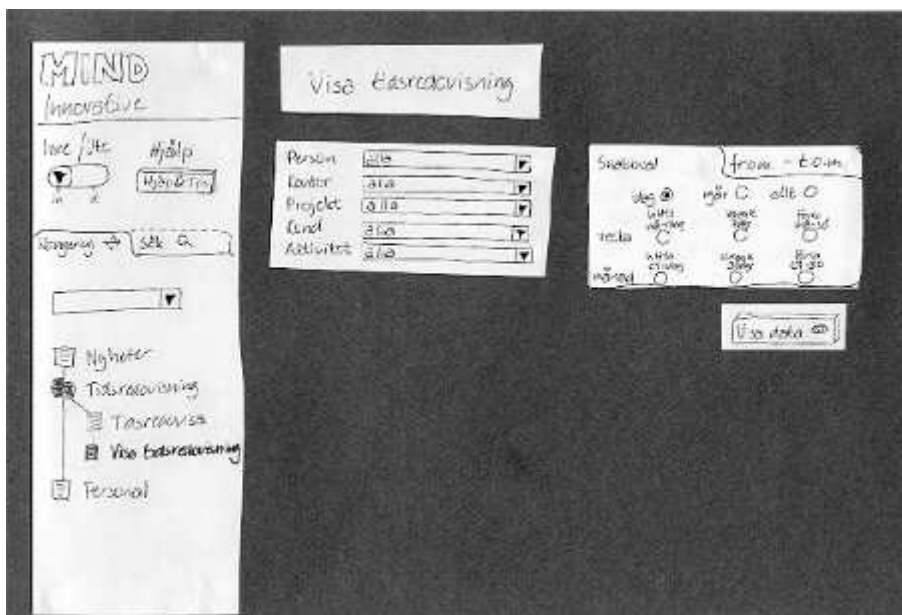 MIND
Innovative
Inne / Ute
Hjälp
in
Navigering
Sök
Nyheter
Tidsredovisning
Tidsredovisa
Visa tidsredovisning
Personal
Visa tidsredovisning
Person alla
Kontor alla
Projekt alla
Kund alla
Aktivitet alla
Snabbval
from - tom
idag igår allt
vecka
månad
Visa data